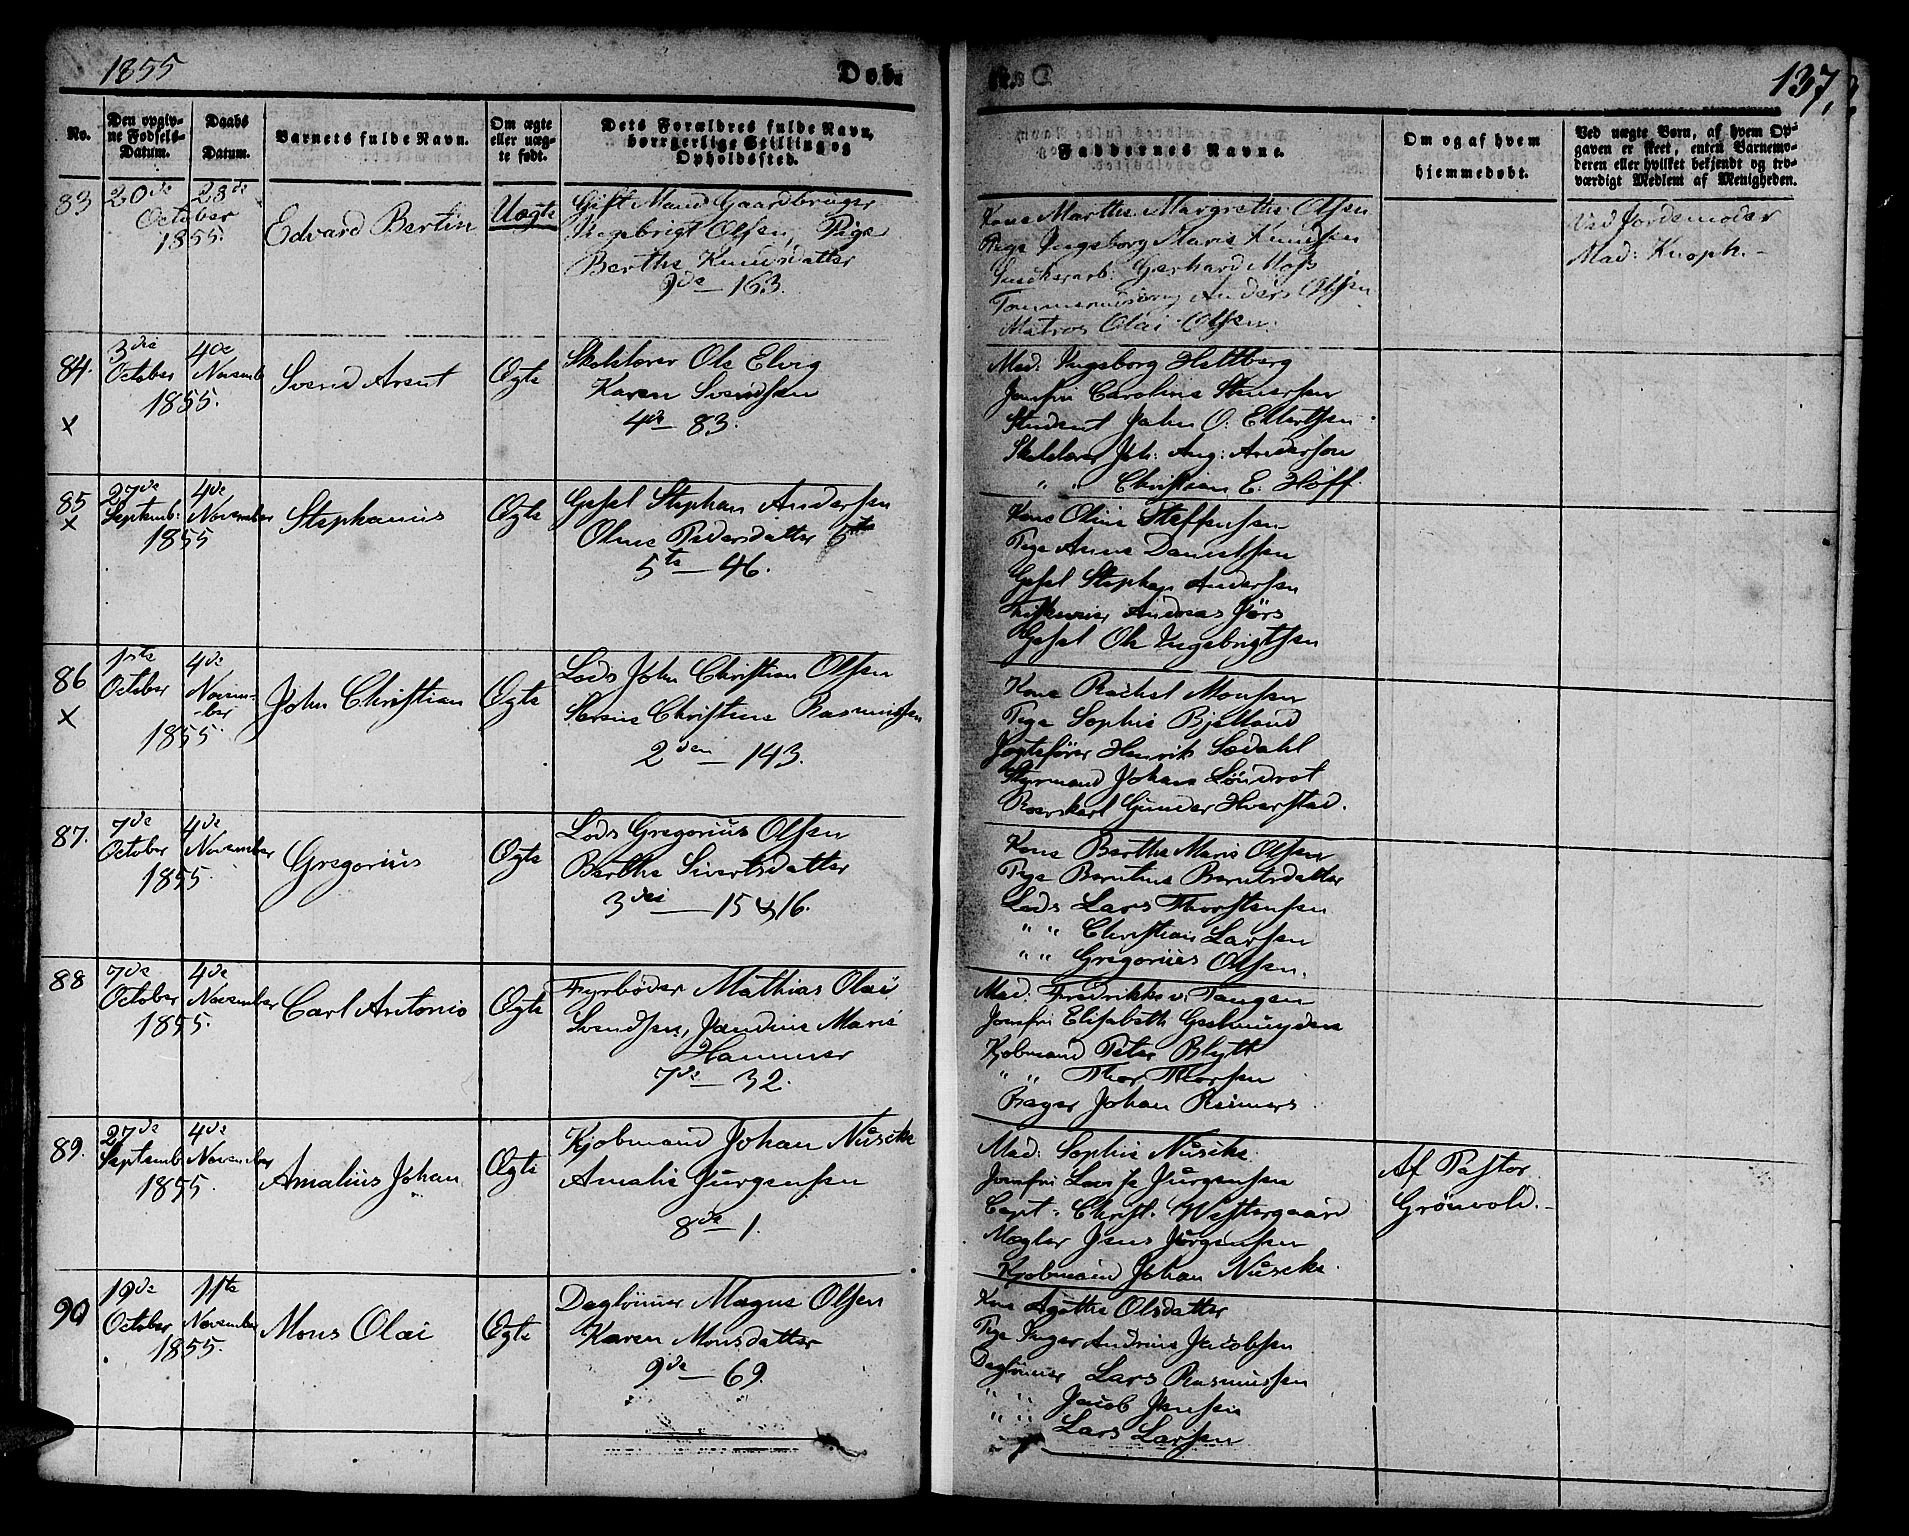 1855
Døbe
137,
No.
Den opgiv-
ne Fødsels-
Datum.
Daabs
Datum.
Barnets fulde Navn.
Om ægte
eller uæg-
te født.
Dets Forældres fulde Navn,
borgerlige Stilling og
Opholdssted.
Faddernes Navne.
Om og af hvem
hjemmedøbt.
Ved uægte Børn, af hvem Op-
gaven er skeet, enten Barnemo-
deren eller hvilket bekjendt og tro-
værdigt Medlem af Menigheden.
83
20de
October
1855.
28de
Edvard Bertin
Uægte
Gift Mand Gaardbruger
Olsen, Pige
Berthe Knudsdatter
9de — 163.
Kone Marthe Margrethe Olsen
Pige Ingeborg Marie Knudsen
Gerhard Moss
Anders Olsen
Matros Olai Olsen.
Ved Jordemoder
Mad: Knoph. –
84.
x
3die
October
4de
Novemb
1855.
Svend Arent
Ægte
Skolelærer Ole Elvig
Karen Svendsen
4de — 83.
Mad: Ingeborg Heltberg
Jomfru Caroline Steuersen
Student John O. Ellertsen
Skolelærer Joh: Aug: Anderson
" " Christian E. Hoff.
85
x
27de
Septemb:
4de
November
1855
Stephanus
Ægte
Gesel Stephan Andersen
Oline Pedersdatter
5te — 46.
Kone Oline Steffensen
Pige Anne Danielsen
Gesel Stephan Andersen
Andreas Jørs
Gesel Ole Ingebrigtsen
86
x
1ste
October
4de
Novem-
ber
1855.
John Christian
Ægte
Lods John Christian Olsen
Serine Christine Rasmussen
2den — 143.
Kone Rachel Monsen
Pige Sophie Bjelland
Jogtefører Henrik Sædahl
Styrmand Johan Søndrot
Roerskarl Gunder Hverstad.
87.
7de
October
4de
November
1855.
Gregorius
Ægte
Lods Gregorius Olsen
Berthe Sivertsdatter
3die — 15 & 16.
Kone Berthe Marie Olsen
Pige Berntine Berntsdatter
Lods Lars Thorstensen
" " Christian Larsen
" " Gregorius Olsen.
88
7de
October
4de
November
1855.
Carl Antonio
Ægte
Fyrbøder Mathias Olai
Svendsen, Jandine Marie
Hammer
7de — 32.
Mad: Fredrikke v: Tangen
Jomfru Elisabeth Geelmuyden
Kjøbmand Peter Blytt
" " Thor Thorsen
Bager Johan Reimers.
89.
27de
Septemb
4de
November
1855.
Amalius Johan
Ægte
Kjøbmand Johan Nuscke
Amalie Jürgensen
8de — 1.
Mad: Sophie Nuscke.
Jomfru Lovise Jürgensen
Capt: Christ: Westergaard
Mægler Jens Jürgensen
Kjøbmand Johan Nuscke.
Af Pastor
Grönvold. –
90
19de
October
11te
November
1855.
Mons Olai
Ægte
Daglønner Magne Olsen
Karen Monsdatter
9de — 69.
Kone Agathe Olsdatter
Pige Inger Andrine Jacobsen
Daglønner Lars Rasmussen
" " Jacob Jensen
" " Lars Larsen